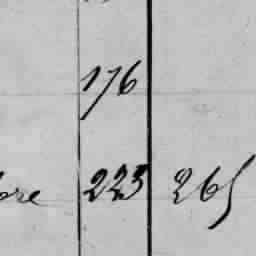 176
bre 223 265